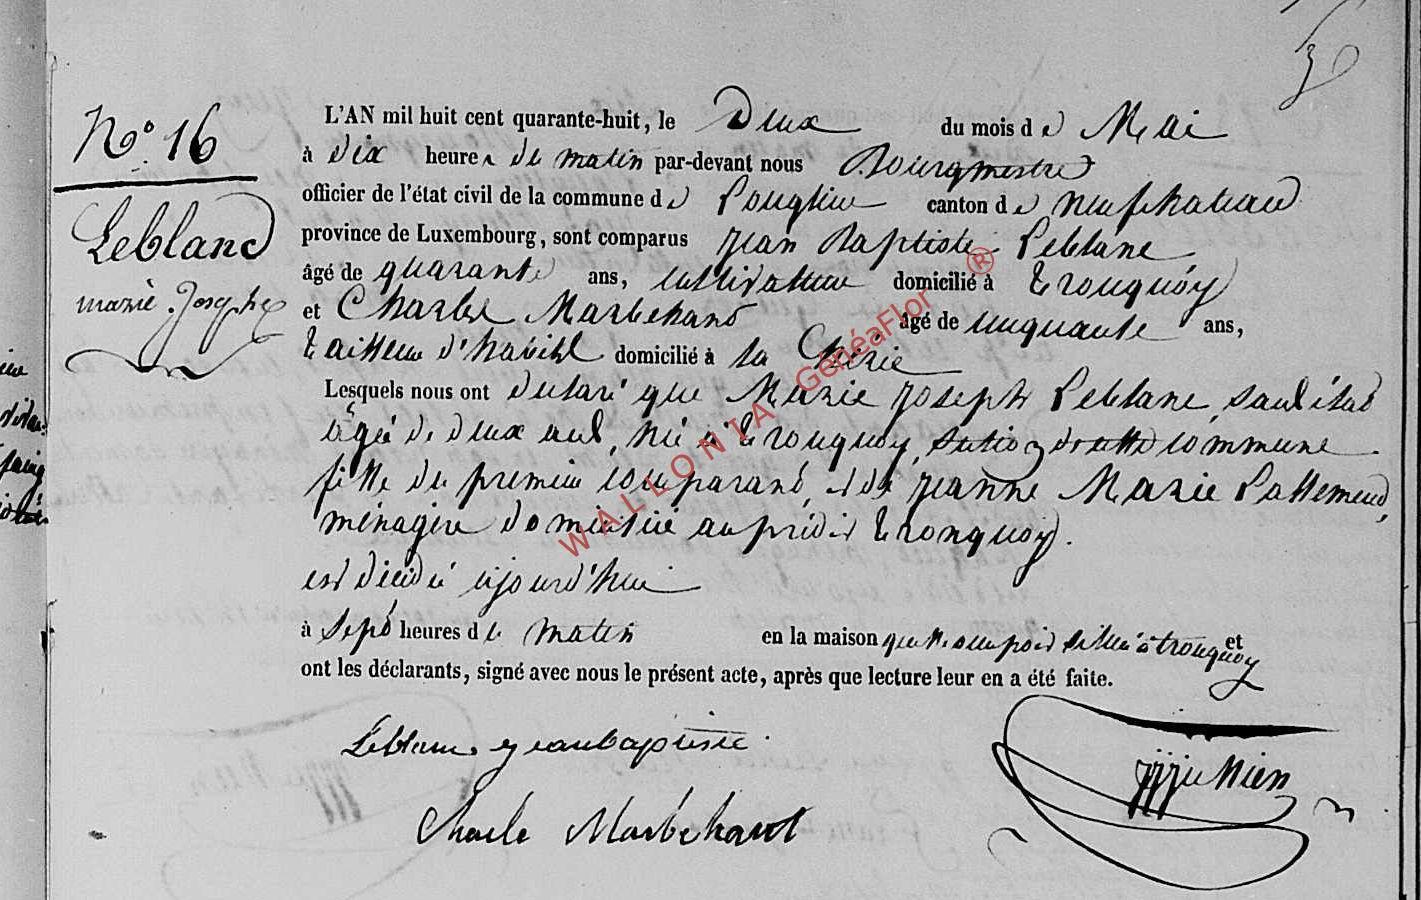 N° 16
Leblanc
marie Josephe
L'AN mil huit cent quarante-huit, le Deux du mois de Mai
à dix heures du matin par-devant nous Bourgmestre
officier de l'état civil de la commune de Longlier canton de neufchateau
province de Luxembourg, sont comparus jean Baptiste Leblanc
âgé de quarante ans, cultivateur domicilié à tronquoy
et Charles Marbehand âgé de cinquante ans,
tailleur d'habits domicilié à la
Lesquels nous ont declaré que Marie joseph Leblanc, sans état
agée de deux ans, née à tronquoy, section de cette commune
fille du premier comparant, et de jeanne Marie Lallemend,
ménagère domiciliée au prédit tronquoy.
est décédé ajourd'hui
à sept heures du matin en la maison situé à tronquoy et
ont les déclarants, signé avec nous le présent acte, après que lecture leur en a été faite.
Leblanc jeanbaptiste
Charle Marbehant
WALLONIA GénéaFlor ®